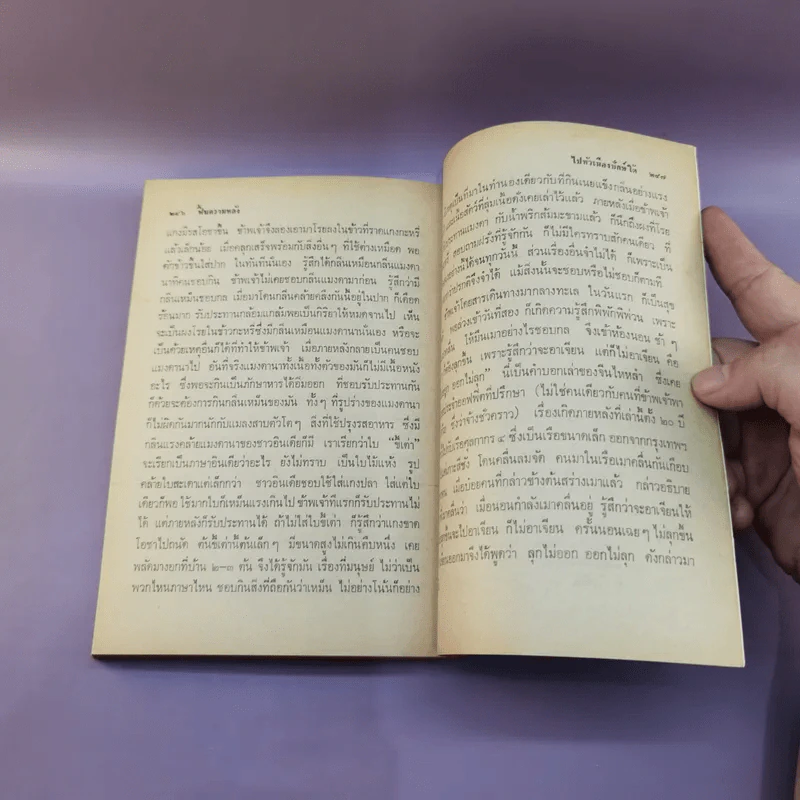 ๒๔๖ ฟื้นความหลัง
แกงมีรสโอชาขึ้น ข้าพเจ้าจึงลองเอามาโรยลงในข้าวที่ราดแกงกะหรี่
แล้วเล็กน้อย เมื่อคลุกเสร็จพร้อมกับสิ่งอื่นๆ ที่ใช้ต่างเหมือด พอ
ตักข้าวขึ้นใส่ปาก ในทันทีนั้นเอง รู้สึกได้กลิ่นเหมือนกลิ่นแมงดา
นาที่คนชอบกิน ข้าพเจ้าไม่เคยชอบกลิ่นแมงดามาก่อน รู้สึกว่ามี
กลิ่นเหม็นชอบกล เมื่อมาโดนกลิ่นคล้ายคลึงกันนี้อยู่ในปาก ก็เดือด
ร้อนมาก รับประทานกล้อมแกล้มพอเป็นกิริยาให้หมดจานไป เห็น
จะเป็นผงโรยในข้าวกะหรี่ซึ่งมีกลิ่นเหมือนแมงดานานั่นเอง หรือจะ
เป็นด้วยเหตุอื่นก็ได้ที่ทำให้ข้าพเจ้า เมื่อภายหลังกลายเป็นคนชอบ
แมงดานาไป อันที่จริงแมงดานาทั้งเนื้อทั้งตัวของมันก็ไม่มีเนื้อหนัง
อะไร ซึ่งพอจะกินเป็นภักษาหารได้อิ่มออก ที่ชอบรับประทานกัน
ก็ด้วยจะต้องการกินกลิ่นเหม็นของมัน ทั้งๆ ที่รูปร่างของแมงดานา
ก็ไม่ผิดกันมากนักกับแมลงสาบตัวโตๆ สิ่งที่ใช้ปรุงรสอาหาร ซึ่งมี
กลิ่นแรงคล้ายแมงดานาของชาวอินเดียก็มี เราเรียกว่าใบ “ขี้เต่า”
จะเรียกเป็นภาษาอินเดียว่าอะไร ยังไม่ทราบ เป็นใบไม้แห้ง รูป
คล้ายใบสะเดาแต่เล็กกว่า ชาวอินเดียชอบใช้ใส่แกงปลา ใส่แต่ใบ
เดียวก็พอ ใช้มากใบก็เหม็นแรงเกินไป ข้าพเจ้าที่แรกก็รับประทานไม่
ได้ แต่ภายหลังก็รับประทานได้ ถ้าไม่ใส่ใบขี้เต่า ก็รู้สึกว่าแกงขาด
โอชาไปถนัด ต้นขี้เต่านี้ต้นเล็กๆ มีขนาดสูงไม่เกินคืบหนึ่ง เคย
พลัดมางอกที่บ้าน ๒–๓ ต้น จึงได้รู้จักมัน เรื่องที่มนุษย์ ไม่ว่าเป็น
พวกไหนภาษาไหน ชอบกินสิ่งที่ถือกันว่าเหม็น ไม่อย่างโน้นก็อย่าง
ไปหัวเมืองปักษ์ใต้ ๒๔๗
เป็นที่มาในทำนองเดียวกับที่กินเนยแข็งกลิ่นอย่างแรง
เนื้อสัตว์ที่สุ่มเนื้อดังเคยเล่าไว้แล้ว ภายหลังเมื่อข้าพเจ้า
ประทานแมงดา กับน้ำพริกส้มมะขามแล้ว ก็นึกถึงผงที่โรย
สอบถามฝรั่งที่รู้จักกัน ก็ไม่มีใครทราบสักคนเดียว ที่
ได้จนทุกวันนี้ ส่วนเรื่องอื่นจำไม่ได้ ก็เพราะเป็น
กว่าปรกติจึงจำได้ แม้สิ่งนั้นจะชอบหรือไม่ชอบก็ตามที
ข้าพเจ้าโดยสารเดินทางมากลางทะเล ในวันแรก ก็เป็นสุข
พอล่วงเข้าวันที่สอง ก็เกิดความรู้สึกพิพักพิพ่วน เพราะ
ให้มึนเมาอย่างไรชอบกล จึงเข้าห้องนอน ช้าๆ
ลุกขึ้น เพราะรู้สึกว่าจะอาเจียน แต่ก็ไม่อาเจียน คือ
ออกไม่ลุก” นี่เป็นคำบอกเล่าของจีนไหหลำ ซึ่งเคย
ประจำออฟฟิศที่ปรึกษา (ไม่ใช่คนเดียวกับคนที่ข้าพเจ้าพา
ซึ่งว่าจ้างชั่วคราว) เรื่องเกิดภายหลังที่เล่านี้ตั้ง ๒๐ ปี
กับเรือศุลกากร ๔ ซึ่งเป็นเรือขนาดเล็ก ออกจากกรุงเทพฯ
เกาะสีชัง โดนคลื่นลมจัด คนมาในเรือเมาคลื่นกันเกือบ
เมื่อบ๋อยคนที่กล่าวข้างต้นสร่างเมาแล้ว กล่าวอธิบาย
คลื่นว่า เมื่อนอนกำลังเมาคลื่นอยู่ รู้สึกว่าจะอาเจียนให้
ขึ้นจะไปอาเจียน ก็ไม่อาเจียน ครั้นนอนเฉยๆ ไม่ลุกขึ้น
ออกมาจึงได้พูดว่า ลุกไม่ออก ออกไม่ลุก ดังกล่าวมา